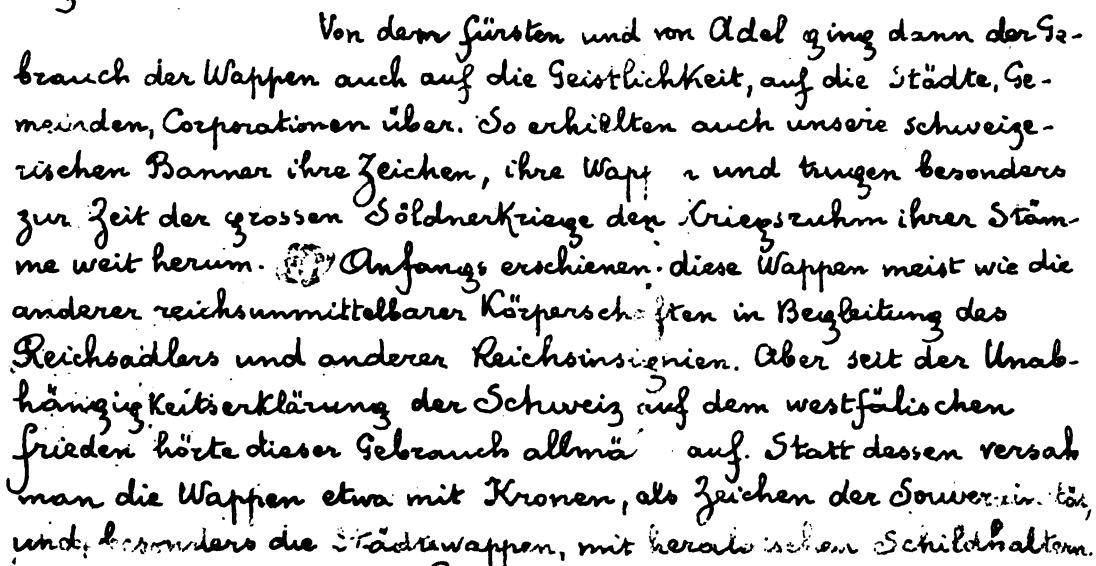 Von dem Fürsten und von Adel ging dann der Ge-
brauch der Wappen auch auf die Geistlichkeit, auf die Städte, Ge-
meinden, Corporationen über. So erhielten auch unsere schweize-
rischen Banner ihre Zeichen, ihre und trugen besonders
zur Zeit der grossen Söldnerkriege den Kriegsruhm ihrer Stäm-
me weit herum. Anfangs erschienen diese Wappen meist wie die
anderer reichsunmittelbarer Körperschaften in Begleitung des
Reichsadlers und anderer Reichsinsignien. Aber seit der Unab-
hängigkeitserklärung der Schweiz auf dem westfälischen
frieden hörte dieser Gebrauch auf. Statt dessen versah
man die Wappen etwa mit Kronen, als Zeichen der
und, besonders die Städtewappen, mit heraldischen Schildhaltern.